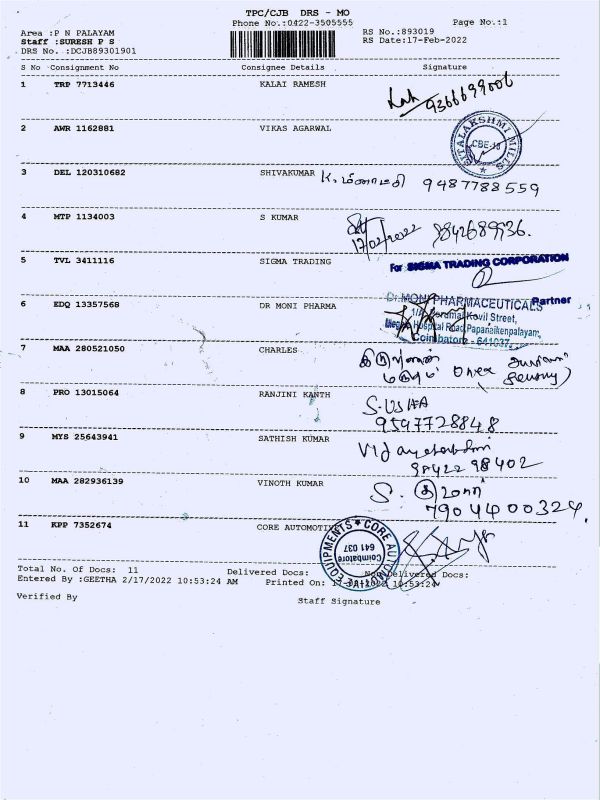 TPC/CJB DRS - MO
Phone No.:0422-3505555
Page No.:1
Area :P N PALAYAM
Staff :SURESH P S
DRS No. :DCJB89301901
RS No.:893019
RS Date:17-Feb-2022
S No Consignment No Consignee Details Signature
1 TRP 7713446 KALAI RAMESH
9366699006
2 AWR 1162881 VIKAS AGARWAL
SITALAKSHMI MILLS
CBE-18
3 DEL 120310682 SHIVAKUMAR K. மீனாட்சி 9487788559
4 MTP 1134003 S KUMAR
17/02/2022 9842689536.
5 TVL 3411116 SIGMA TRADING
For SIGMA TRADING CORPORATION
Partner
6 EDQ 13357568 DR MONI PHARMA
Dr.MONI PHARMACEUTICALS
Perumal Kovil Street,
Hospital Road, Papanaikenpalayam,
Coimbatore - 641037.
7 MAA 280521050 CHARLES
8 PRO 13015064 RANJINI KANTH
S.USHA
9597728848
9 MYS 25643941 SATHISH KUMAR
98422 98402
10 MAA 282936139 VINOTH KUMAR
S.
7904400324.
11 KPP 7352674 CORE AUTOMOTIVE
CORE AUTOMOTIVE EQUIPMENTS
Coimbatore
641 037
Total No. Of Docs: 11 Delivered Docs: Non-Delivered Docs:
Entered By :GEETHA 2/17/2022 10:53:24 AM Printed On: 10:53:24
Verified By Staff Signature